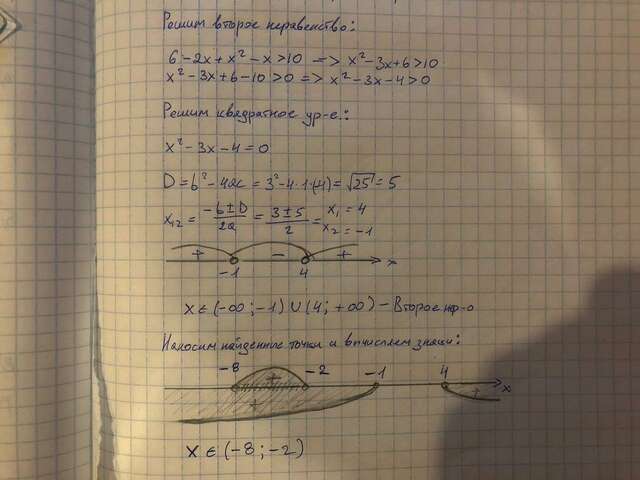 Решим второе неравенство:
6 - 2x + x² - x > 10 => x² - 3x + 6 > 10
x² - 3x + 6 - 10 > 0 => x² - 3x - 4 > 0
Решим квадратное ур-е.:
x² - 3x - 4 = 0
D = b² - 4ac = 3² - 4·1·(-4) = √25 = 5
x₁₂ = (-b ± D)/2a = (3 ± 5)/2 = x₁ = 4
x₂ = -1
+ - + x
-1 4
x ∈ (-∞; -1) ∪ (4; +∞) - Второе нр-о
Наносим найденные точки и вычисляем знаки:
-8 -2 -1 4
+ + + x
x ∈ (-8; -2)